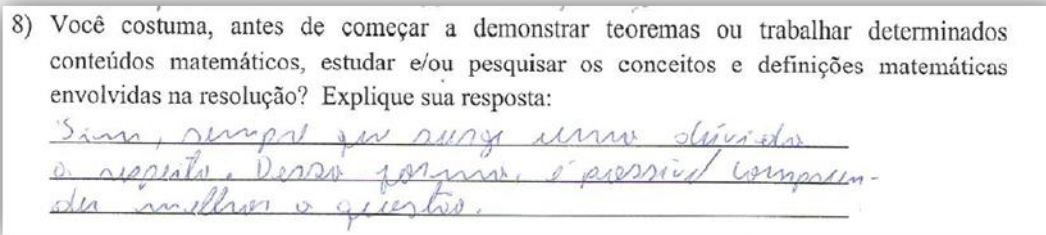 8) Você costuma, antes de começar a demonstrar teoremas ou trabalhar determinados
conteúdos matemáticos, estudar e/ou pesquisar os conceitos e definições matemáticas
envolvidas na resolução? Explique sua resposta:
Sim, sempre que surge uma dúvida
a respeito. Dessa forma, é possível compreen-
der melhor a questão.